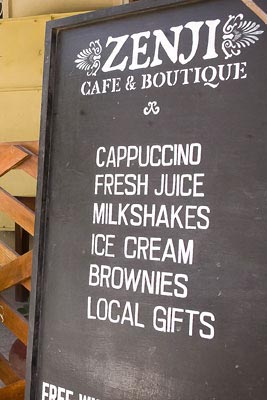 ZENJI
CAFE & BOUTIQUE
CAPPUCCINO
FRESH JUICE
MILKSHAKES
ICE CREAM
BROWNIES
LOCAL GIFTS
FREE